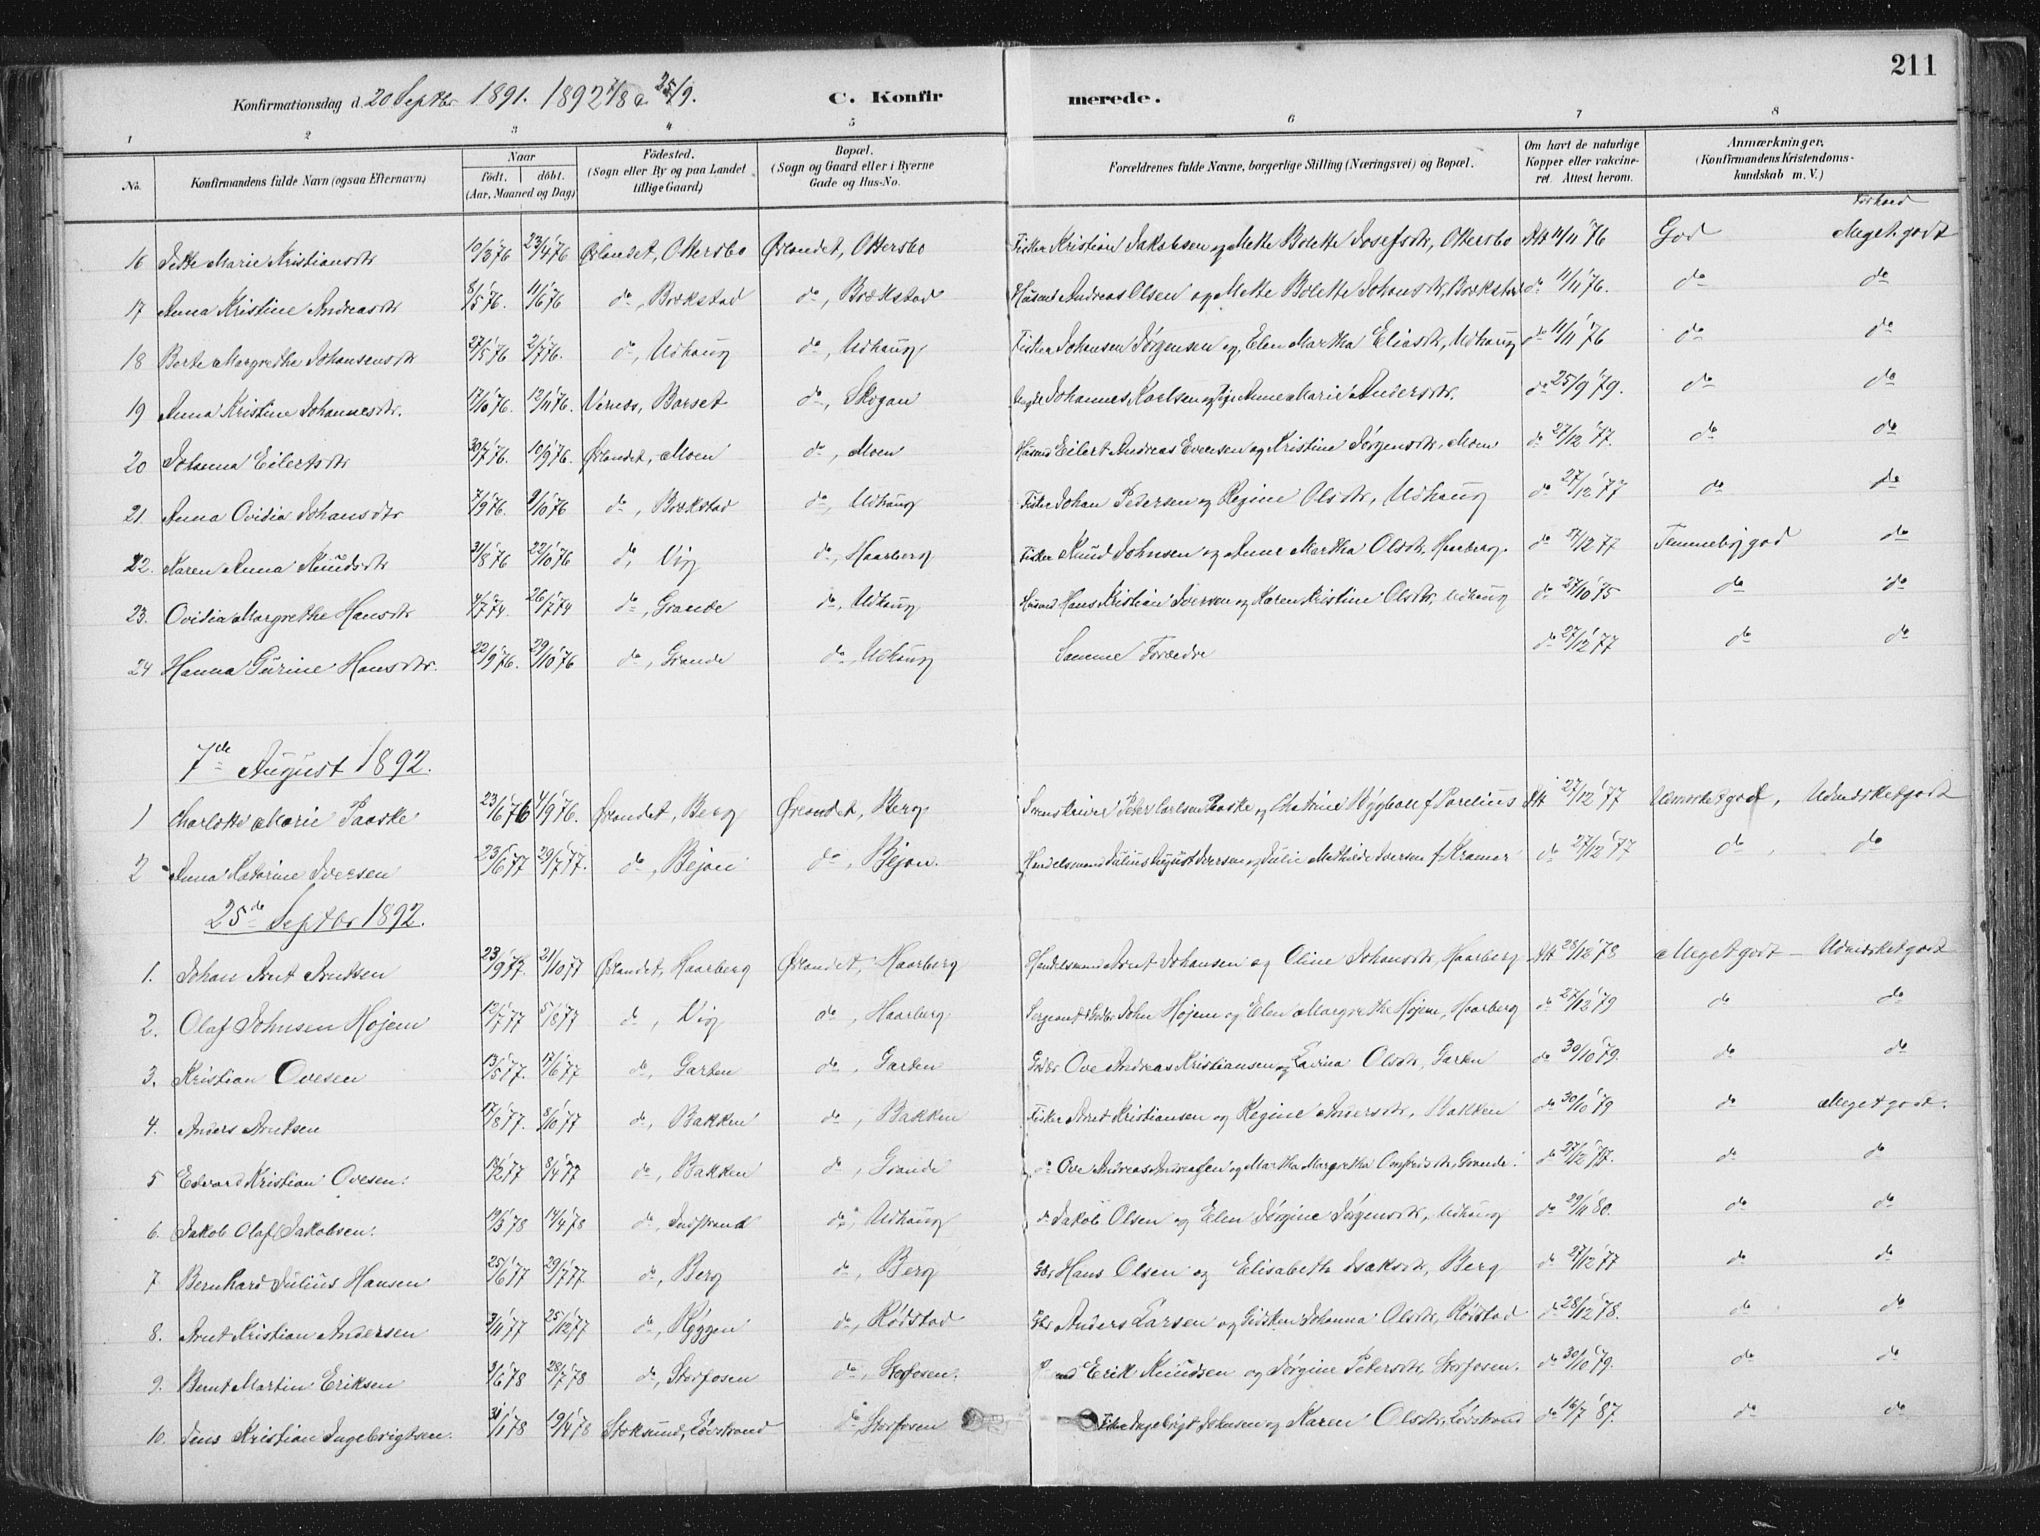 211
Konfirmationsdag d. 20 Septbr 1891. 1892 7/8 & 25/9. C. Konfirmerede.
1 2 3 4 5 6 7 8
No. Konfirmandens fulde Navn (ogsaa Efternavn) Naar født. døbt. (Aar, Maaned og Dag) Fødested. (Sogn eller By og paa Landet tillige Gaard) Bopæl. (Sogn og Gaard eller i Byerne Gade og Hus-No. Forældrenes fulde Navne, borgerlige Stilling (Næringsvei) og Bopæl. Om havt de naturlige Kopper eller vakcineret. Attest herom. Anmærkninger. (Konfirmandens Kristendomskundskab m. V.)
Forhold
16 Marie Kristiansdr 10/3 76 23/4 76 Ørlandet, Ottersbo Ørlandet, Ottersbo Fisker Kristian Jakobsen og Mette Bolette Josefsdr, Ottersbo Att 11/11 76 God Meget godt
17 Anna Kristine Andreasdr 8/5 76 11/6 76 do, Brækstad do, Brækstad Husmd Andreas Olsen og Mette Bolette Johansdr, Brækstad do 11/11 76. do do
18 Berte Margrethe Johansensdr 27/5 76 2/7 76. do, Udhaug do, Udhaug Fisker Johansen Jørgensen og Elen Martha Eliasdr, Udhaug do 11/11 76 do do
19 Anna Kristine Johannesdr. 17/10 76. 12/11 76. Værnes, Barset do, Skogan Johannes Karlsen og Anne Marie Andersdr. do 25/9 79. do do
20 Johanna Eilertsdr 30/7 76. 10/9 76. Ørlandet, Moen do, Moen Husmd Eilert Andreas Eversen og Kristine Jørgensdr, Moen do 27/12 77. do do
21. Anna Ovidia Johansdtr 7/9 76. 8/10 76 do, Brækstad do, Udhaug Fisker Johan Petersen og Regine Olsdtr, Udhaug do 27/12 77 do do
22. Karen Anna Knudsdr 31/8 76 22/10 76 do, Vig do, Haarberg Fisker Knud Johnsen og Anne Martha Olsdr, Haarberg. do 27/12 77 Temmelig god do
23. Ovidia Margrethe Hansdr 4/7 74. 26/7 74 do, Grande do, Udhaug Husmd Hans Kristian Iversen og Karen Kristine Olsdr, Udhaug do 27/10 75 do do
24 Hanna Gurine Hansdtr. 22/9 76. 29/10 76 do, Grande do, Udhaug Samme Forældre do 27/12 77 do do
7de August 1892.
1 Charlotte Marie Paaske 23/6 76 4/9 76. Ørlandet, Berg Ørlandet, Berg Peter Carlsen Paaske og Chatrine Nygball f. Parelius Att 27/12 77 Udmerket god, Udmerket godt
2 Anna Katarine Iversen 23/6 77 29/7 77. do, Bejan do, Bejan. Handelsmand Julius August Iversen og Julie Mathilde Iversen f. Kramer do 27/12 77 do do
25de Septbr 1892.
1. Johan Arnt Arntsen 23/9 77. 21/10 77 Ørlandet, Haarberg Ørlandet, Haarberg Handelsmand Arnt Johansen og Oline Johansdr, Haarberg Att 28/12 78 Meget godt Udmerket godt
2. Olaf Johnsen Højem 12/7 77 5/8 77 do, Vig do, Haarberg Sergeant John Højem og Elen Margrethe Højem, Haarberg do 27/12 79 do do
3. Kristian Ovesen 13/5 77. 17/6 77 do, Garten do, Garten Gbr Ove Andreas Kristiansen og Lavina Olsdr, Garten do 30/10 79. do do
4. Anders Arntsen 17/8 77. 8/10 77 do, Bakken do, Bakken Fisker Arnt Kristiansen og Regine Andersdr, Bakken do 30/10 79 do Meget godt.
5 Edvard Kristian Ovesen. 12/2 77 8/4 77 do, Bakken do, Grande do Ove Andreas Andreassen og Martha Margretha, Grande. do 27/12 77. do do
6. Jakob Olaf Jakobsen. 12/3 78 14/4 78 do, Indstrand do, Udhaug do Jakob Olsen og Elen Jørgine Jørgensdr, Udhaug do 29/11 80. do do
7 Bernhard Julius Hansen 25/6 77 29/7 77. do, Berg do, Berg Gbr Hans Olsen og Elisabeth Isaksdr, Berg do 27/12 77 do do
8. Arnt Kristian Andersen 3/11 77 25/12 77 do, Ryggen do, Rødstad Gbr Anders Larsen og Gidsken Johanna Olsdr, Rødstad do 28/12 78. do do
9. Bernt Martin Eriksen 3/6 78 28/7 78 do, Storfosen do, Storfosen. Erik Knudsen og Jørgine Petersdr, Storfosen. do 30/10 79. do do
10. Jens Kristian Ingebrigtsen. 31/1 78 19/4 78 Stoksund, Lövstrand do Storfosen Fisker Ingebrigt Johnsen og Karen Olsdr, Lövstrand do 16/7 87. do do